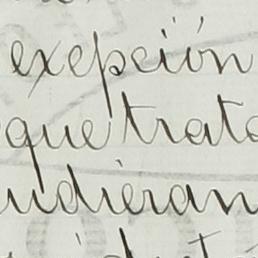 exepción
que trata
udieran